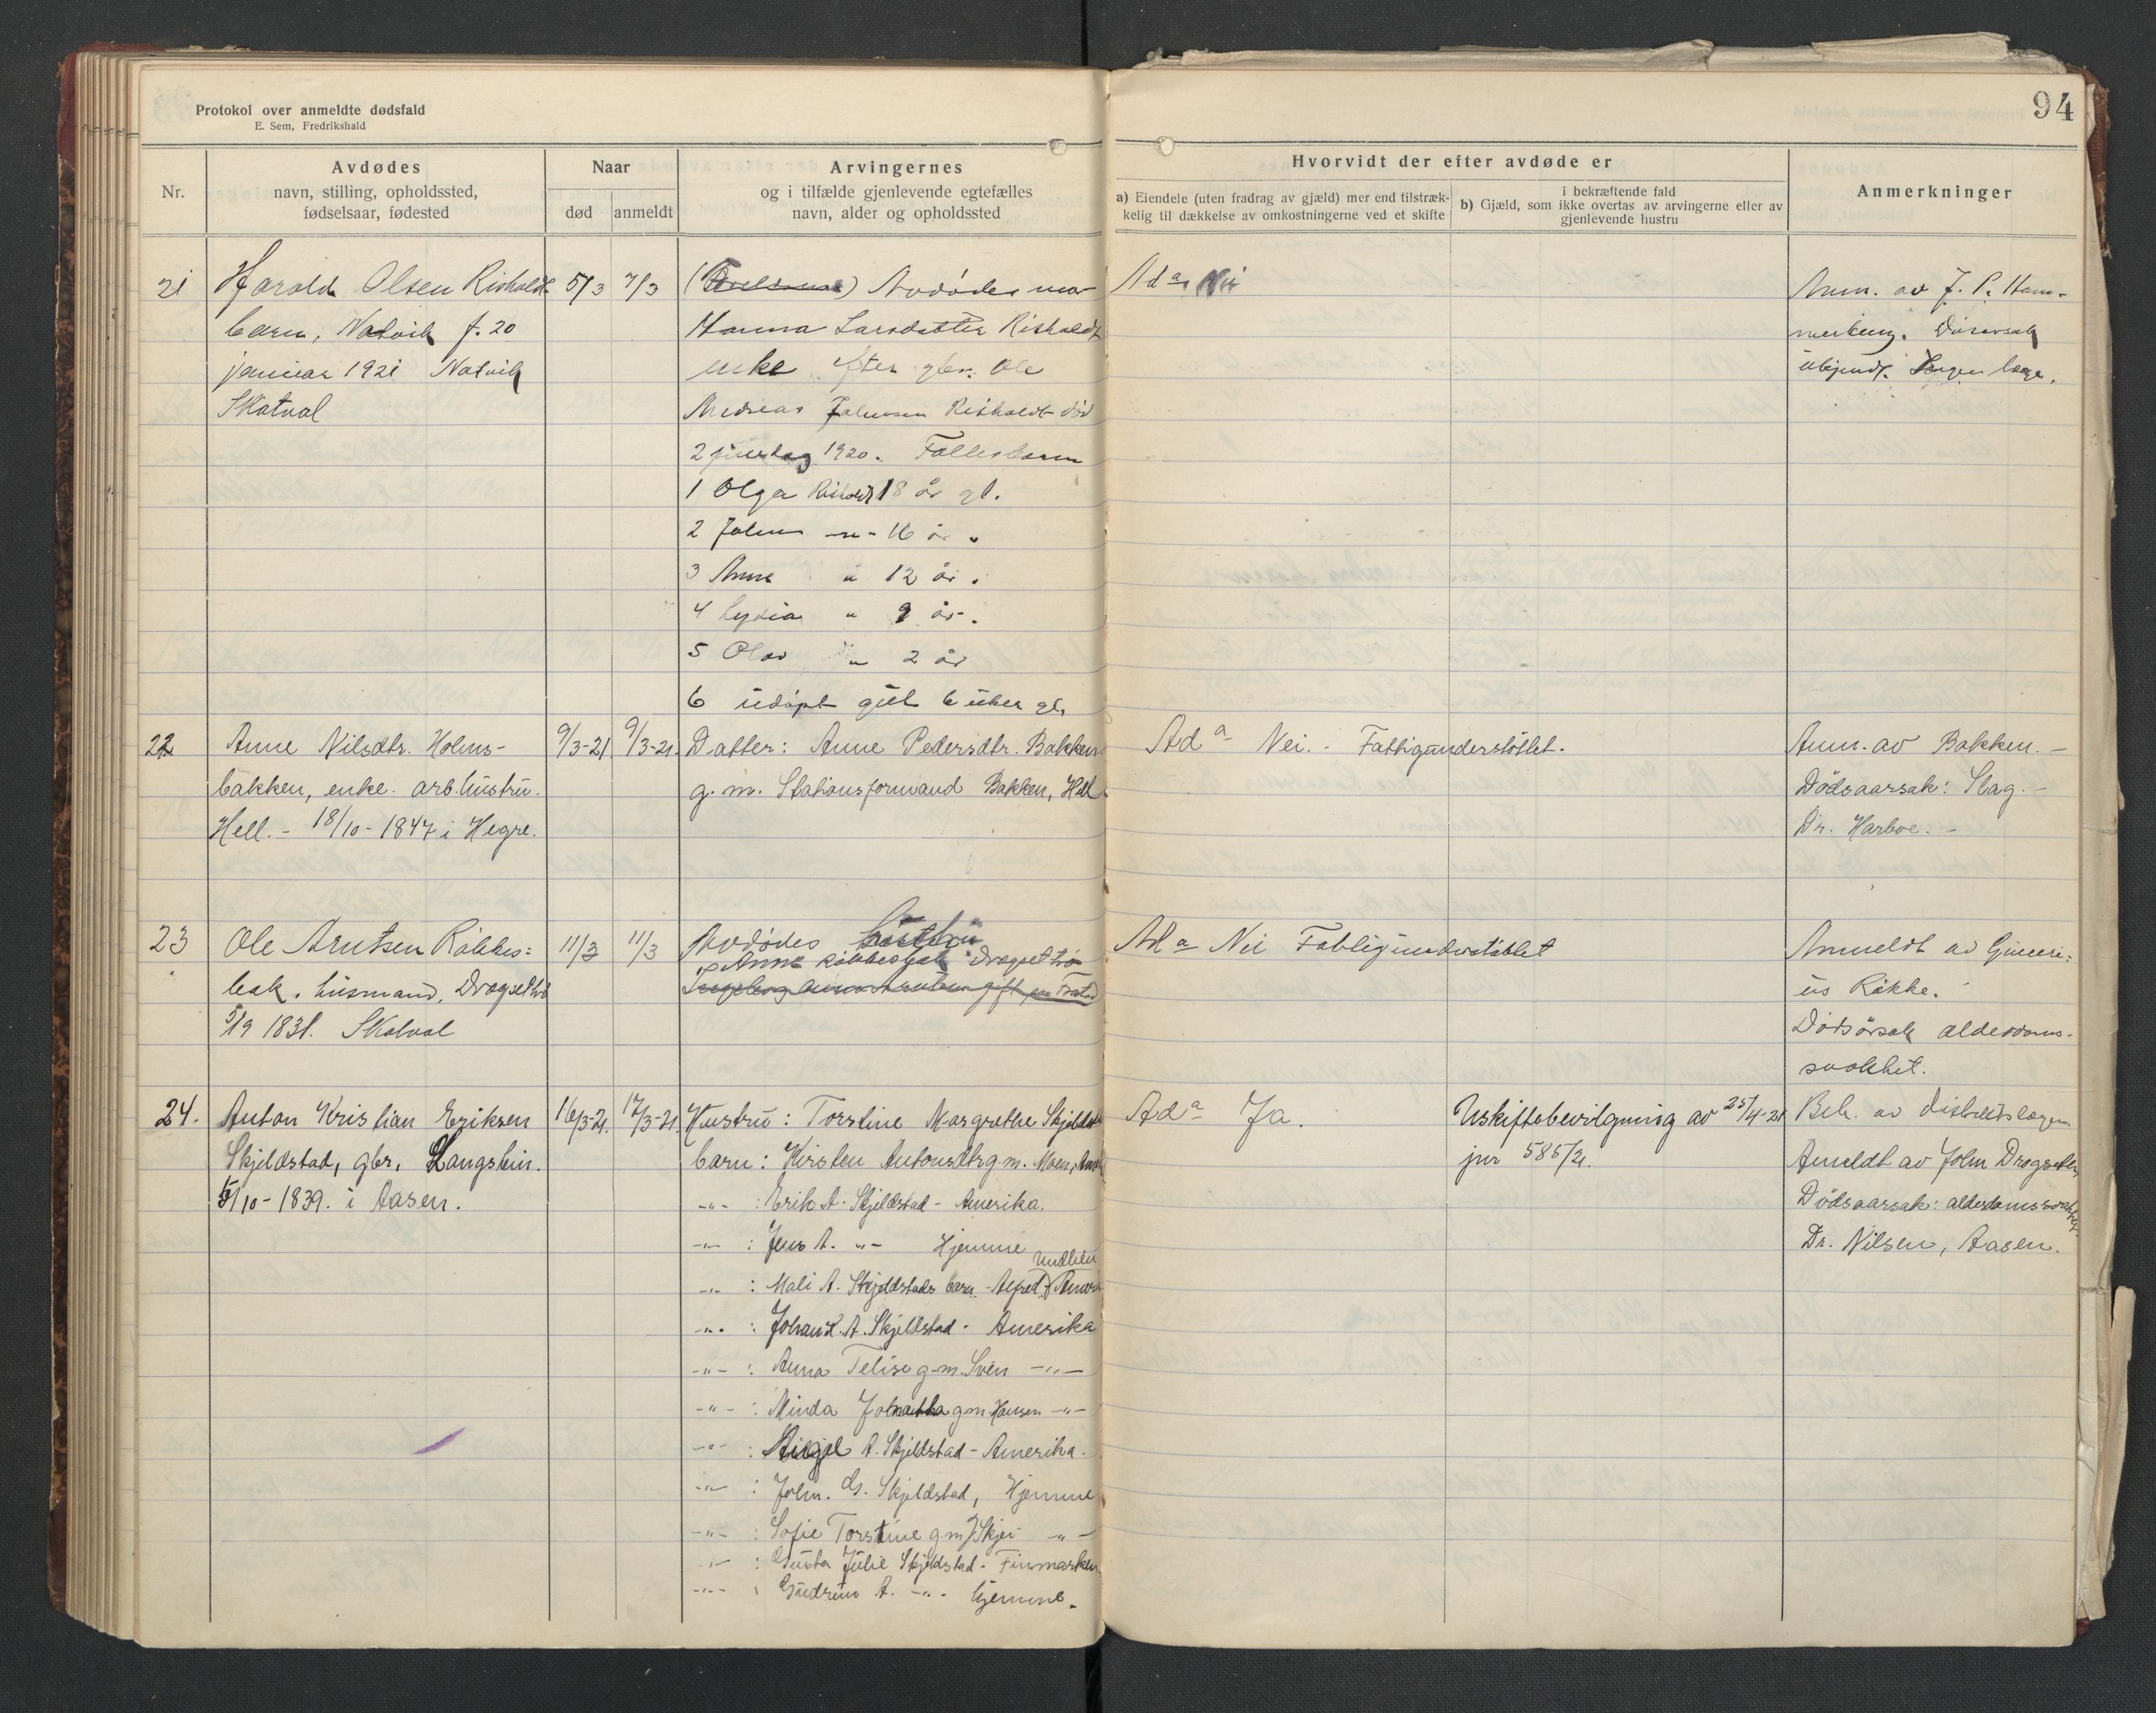 Protokol over anmeldte dødsfald
E. Sem, Fredrikshald
94
Nr.
Avdødes
navn, stilling, opholdssted,
fødselsaar, fødested
Naar
død
anmeldt
Arvingernes
og i tilfælde gjenlevende egtefælles
navn, alder og opholdssted
Hvorvidt der efter avdøde er
a) Eiendele (uten fradrag av gjæld) mer end tilstræk-
kelig til dækkelse av omkostningerne ved et skifte
i bekræftende fald
b) Gjæld, som ikke overtas av arvingerne eller av
gjenlevende hustru
Anmerkninger
21
Harold Olsen Risholdt
barn, Natvik f. 20
januar 1921 Natvik
Skatval
5/3
7/3
Avdødes mor
Hanna Larsdatter Risholdt
enke efter gbr. Ole
Andreas Johnsen Risholdt død
2 juledag 1920. Fællesbarn
1 Olga Risholdt 18 år gl.
2 John -"- 16 år "
3 Anna " 12 år "
4 Lydia " 9 år "
5 Olav " 2 år
6 udøpt gut 6 uker gl.
Ad a Nei
Anm. av J. P. Ham-
merberg. Dødsårsak
ubekjendt. Ingen læge.
22
Anne Nilsdtr. Holms-
bakken, enke. arb.hustru.
Hell. - 18/10 - 1847 i Hegre.
9/3-21.
9/3-21.
Datter: Anne Pedersdtr. Bakken
g. m. Stationsformand Bakken, Hell
Ad a Nei. - Fattigunderstøttet.
Anm. av Bakken. -
Dødsaarsak: Slag. -
Dr. Harboe. -
23
Ole Arntsen Røkkes=
bak. husmand, Dragsethrø
5/9 1831. Skatval
11/3
11/3
Avdødes
Anne Røkkesbak Dragsethrø
Ad a Nei Fattigunderstøttet
Anmeldt av
Røkke.
Dødsårsak alderdoms-
svakhet.
24.
Anton Kristian Eriksen
Skjeldstad, gbr, Langstein.
5/10 - 1839. i Aasen.
16/3-21.
17/3-21.
Hustru: Torstine Margrethe Skjeldstad
barn: Kirsten Antonsdtr g. m. Moen, Am
-"- : Erik A. Skjeldstad - Amerika.
-"- : Jens A. -"- Hjemme
-"- : Mali A. Skjeldstads barn - Alfred Amer
-"- : Johan K. A. Skjeldstad - Amerika
-"- : Anna Telise g. m. Sven -"-
-"- : Minda Johnetha g m Hansen -"-
-"- : A. Skjeldstad - Amerika.
-"- : John. A. Skjeldstad, Hjemme
-"- : Sofie Torstine g. m J Skjei -"-
-"- : Gusta Julie Skjeldstad - Finmarken
-"- : Gudrun A. -"- hjemme.
Ad a Ja.
Uskiftebevilgning av 25/4-21
jnr 585/21.
Beh. av distriktslægen
Anmeldt av John Dragseth
Dødsaarsak: alderdomssvakhet
Dr. Nilsen, Aasen.